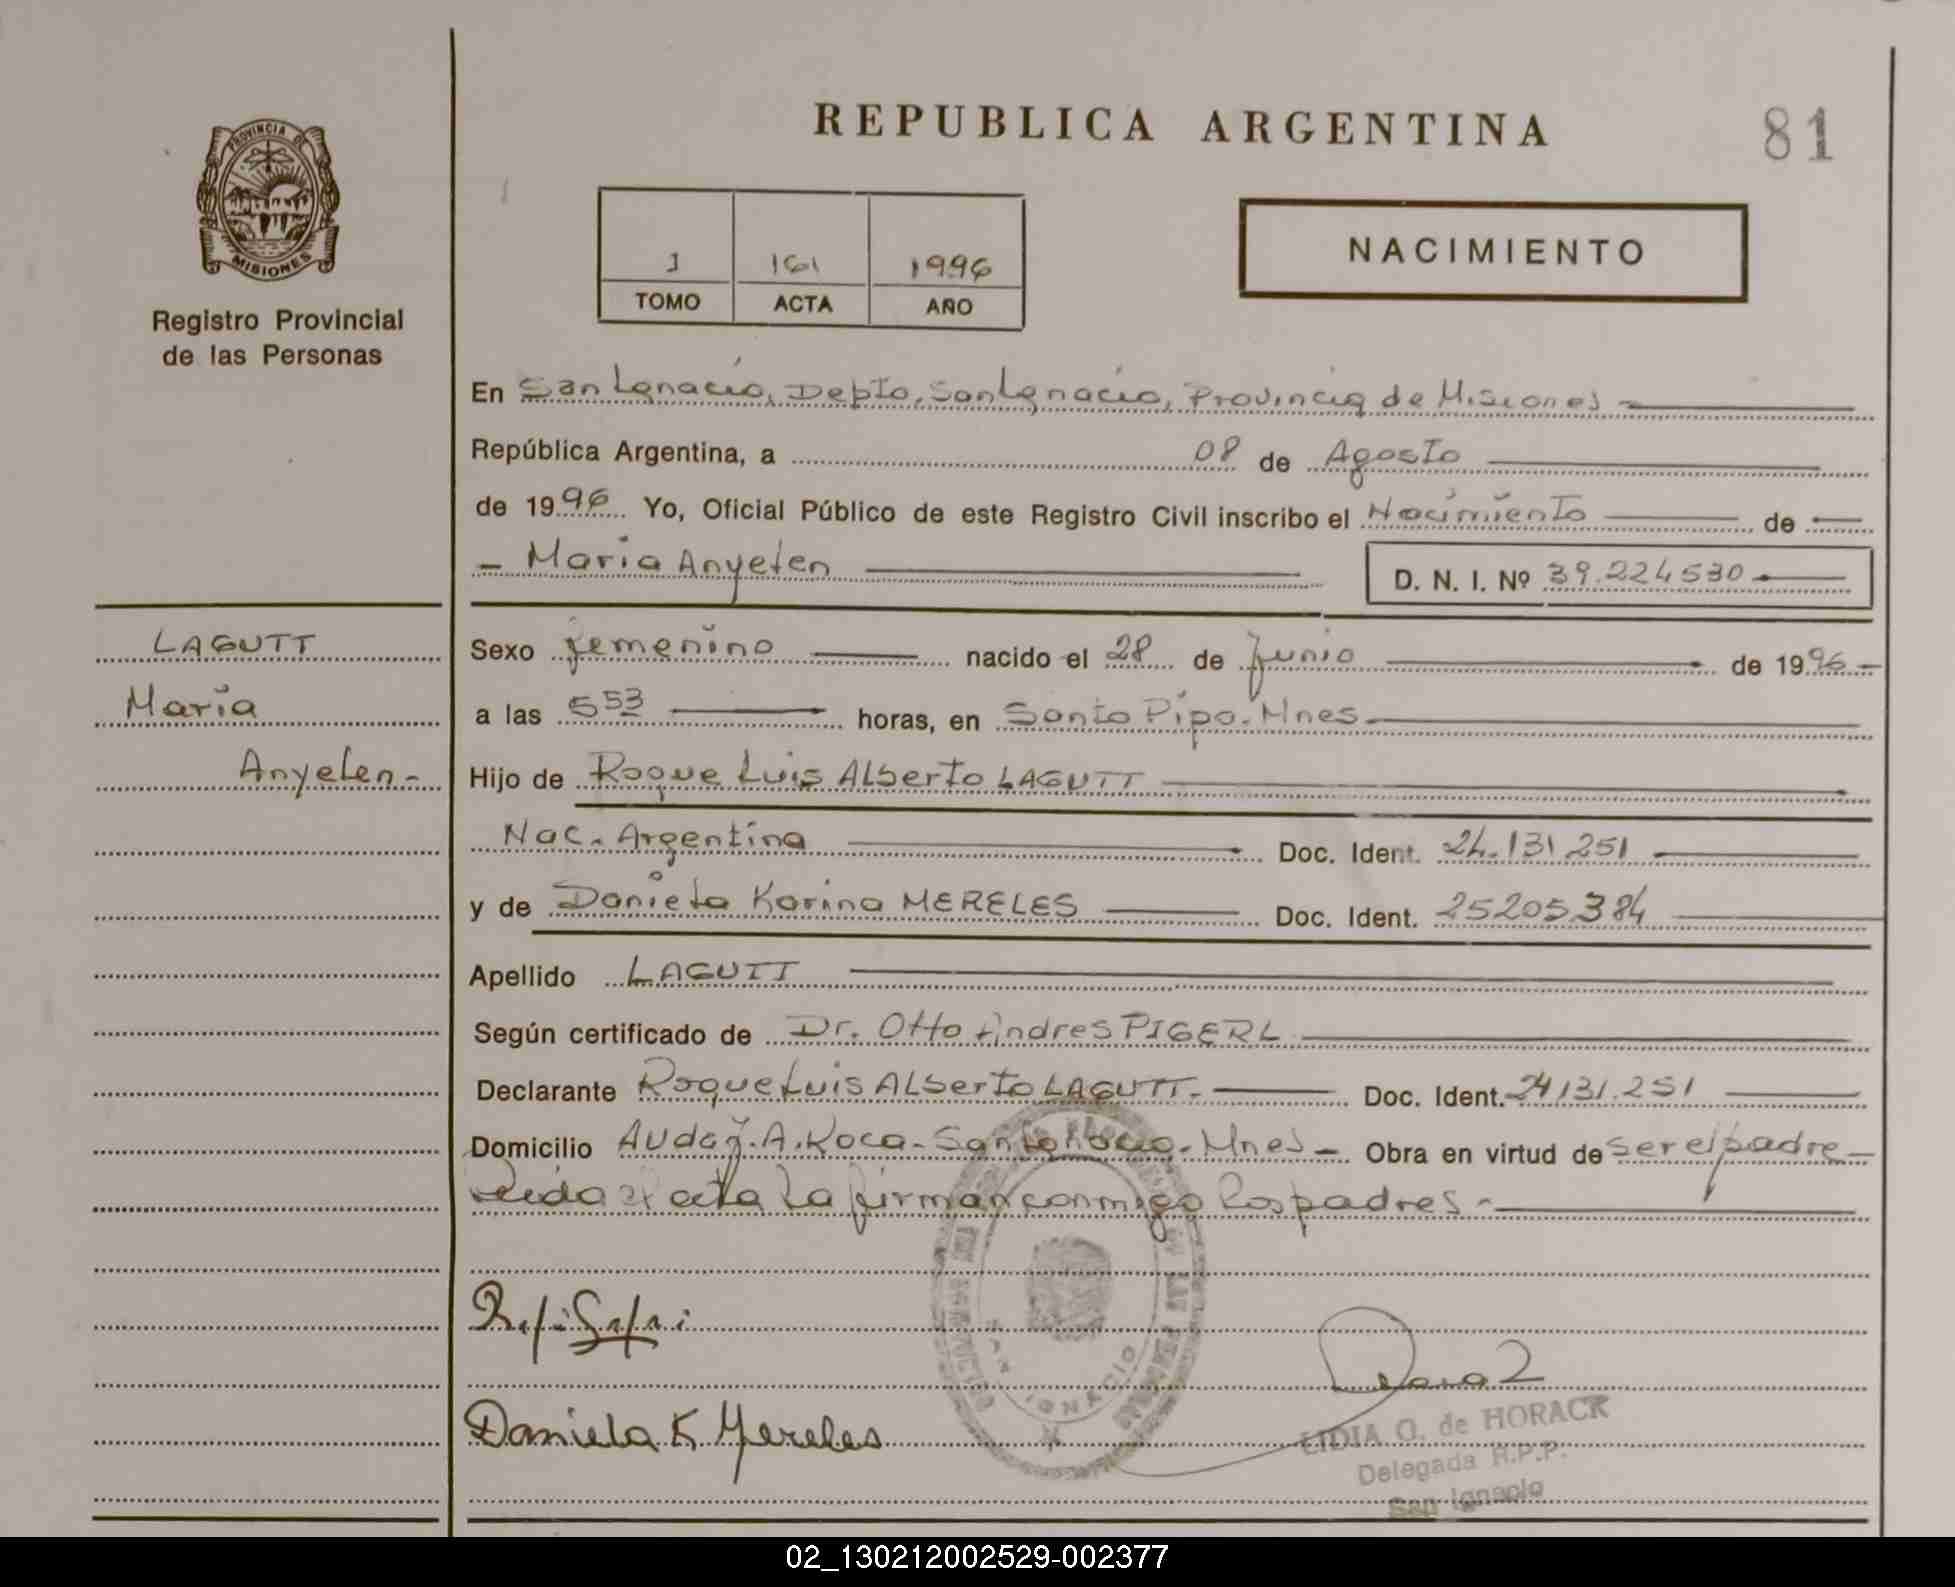 REPUBLICA ARGENTINA
81
PROVINCIA DE
MISIONES
Registro Provincial
de las Personas
1 161 1996
TOMO ACTA AÑO
NACIMIENTO
En San Ignacio, Depto. San Ignacio, Provincia de Misiones
República Argentina, a 08 de Agosto
de 1996 Yo, Oficial Público de este Registro Civil inscribo el Nacimiento de
Maria Anyelen D. N. I. Nº 39.224530
LAGUTT
Maria
Anyelen-
Sexo femenino nacido el 28 de Junio de 1996
a las 5 53 horas, en Santo Pipo. Mnes
Hijo de Roque Luis Alberto LAGUTT
Nac. Argentina Doc. Ident. 24.131.251
y de Daniela Karina MERELES Doc. Ident. 25205384
Apellido LAGUTT
Según certificado de Dr. Otto Andres PIGERL
Declarante Roque Luis Alberto LAGUTT. Doc. Ident. 24131.251
Domicilio Avda J. A. Roca - San Ignacio. Mnes - Obra en virtud de ser el padre
Leida el acta la firman conmigo los padres
Daniela K Mereles
SAN IGNACIO
LIDIA O. de HORACK
Delegada R.P.P.
San Ignacio
02_130212002529-002377